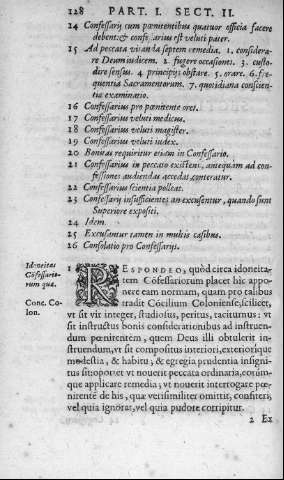 128 PART. I. SECT. II.
14 Confessarij cum pœnitentibus quatuor officia facere
debent: & confessarius est veluti pater.
15 Ad peccata vitanda septem remedia. 1. considera-
re Deum iudicem. 2. fugere occasiones. 3. custo-
dire sensus. 4 principijs obstare. 5. orare. 6. fre-
quentia Sacramentorum. 7. quotidiana conscien-
tiæ examinatio.
16 Confessarius pro pœnitente oret.
17 Confessarius veluti medicus.
18 Confessarius veluti magister.
19 Confessarius veluti iudex.
20 Bonitas requiritur etiam in Confessario.
21 Confessarius in peccato existens, antequam ad con-
fessiones audiendas accedat, conteratur.
22 Confessarius scientia polleat.
23 Confessarij insufficientes an excusentur, quando sunt
Superiore expositi.
24 Idem.
25 Excusantur tamen in multis casibus.
26 Consolatio pro Confessarijs.
Idoneitas
Cõfessario-
rum quæ.
Conc. Co-
lon.
1 RESPONDEO, quòd circa idoneita-
tem Cõfessariorum placet hic appo-
nere eam normam, quam pro talibus
tradit Cõcilium Coloniense, scilicet,
vt sit vir integer, studiosus, peritus, taciturnus: vt
sit instructus bonis considerationibus ad instruen-
dum pœnitentem, quem Deus illi obtulerit in-
struendum, vt sit compositus interiori, exteriorique
modestia, & habitu; & egregia prudentia insigni-
tus sit: oportet vt nouerit peccata ordinaria, eorum-
que applicare remedia; vt nouerit interrogare pœ-
nitentẽ de his, quæ verisimiliter omittit, confiteri,
vel quia ignorat, vel quia pudore corripitur.
2 Ex